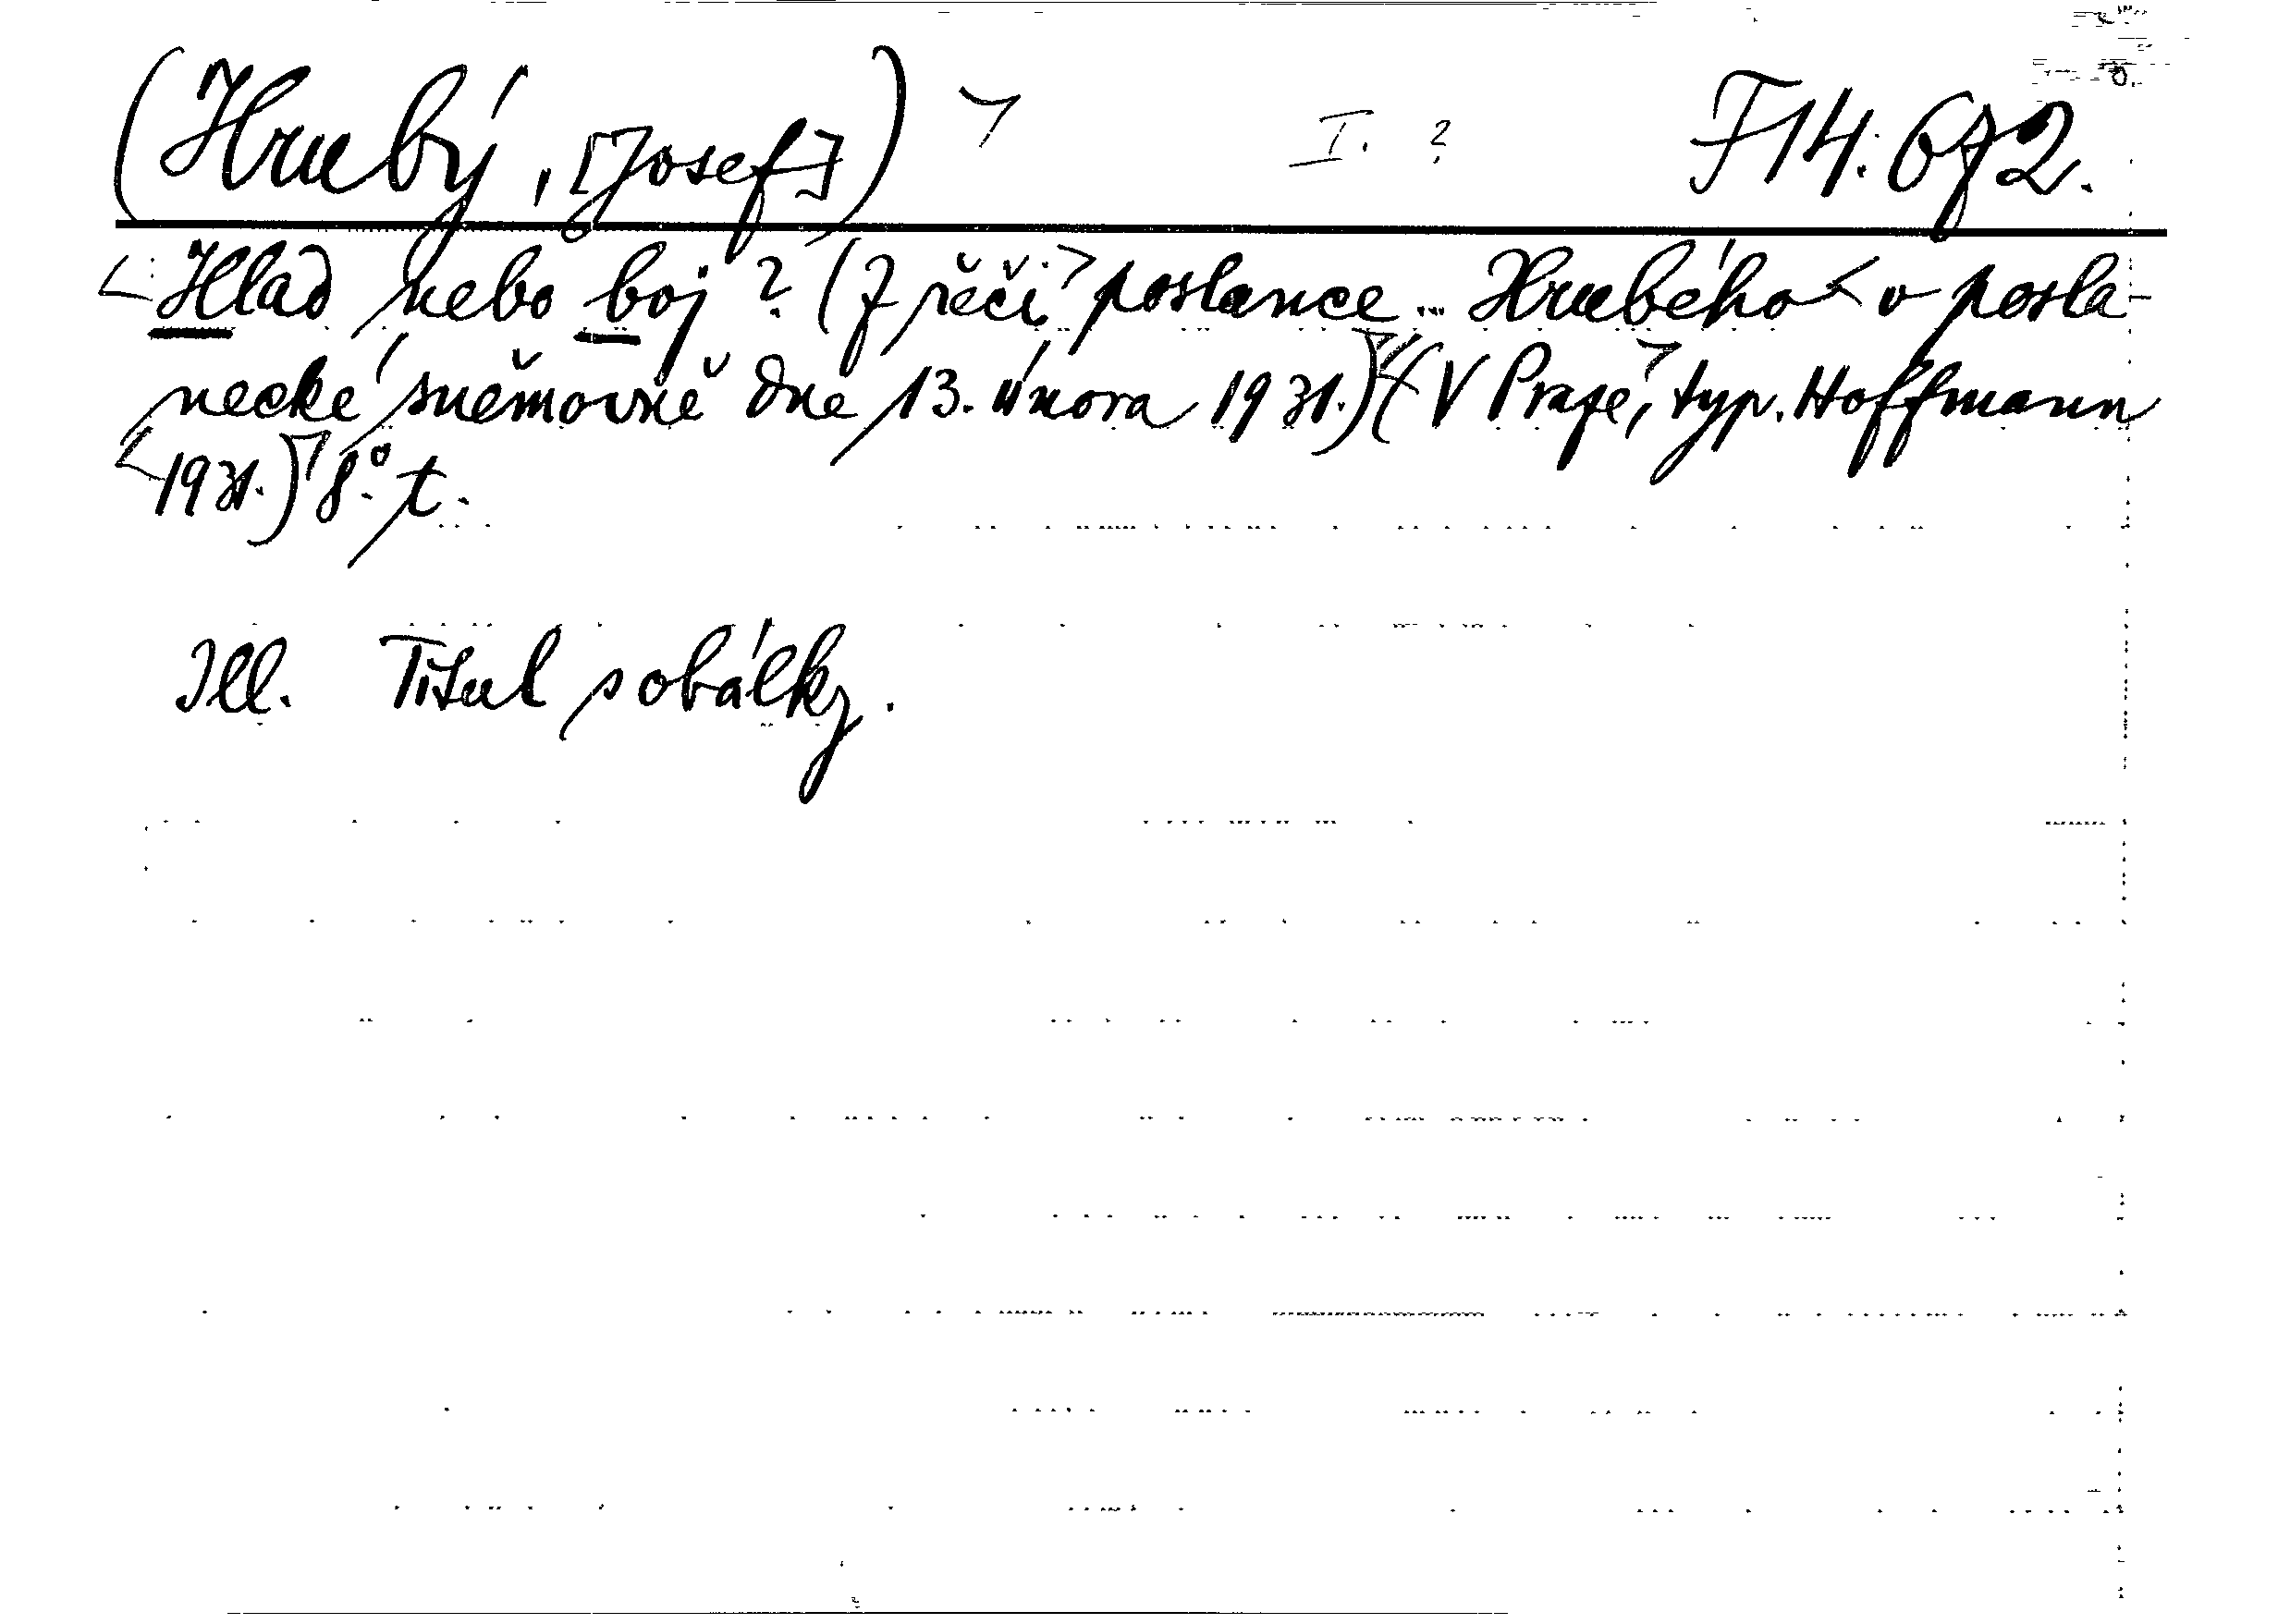 (Hrubý, [Josef]) I. ? F 14.672.
Hlad nebo boj? (Z řeči poslance ... Hrubého v posla-
necké sněmovně dne 13. února 1931.) (V Praze, typ. Hoffmann
1931.) 8.° t.
Ill. Titul s obálky.